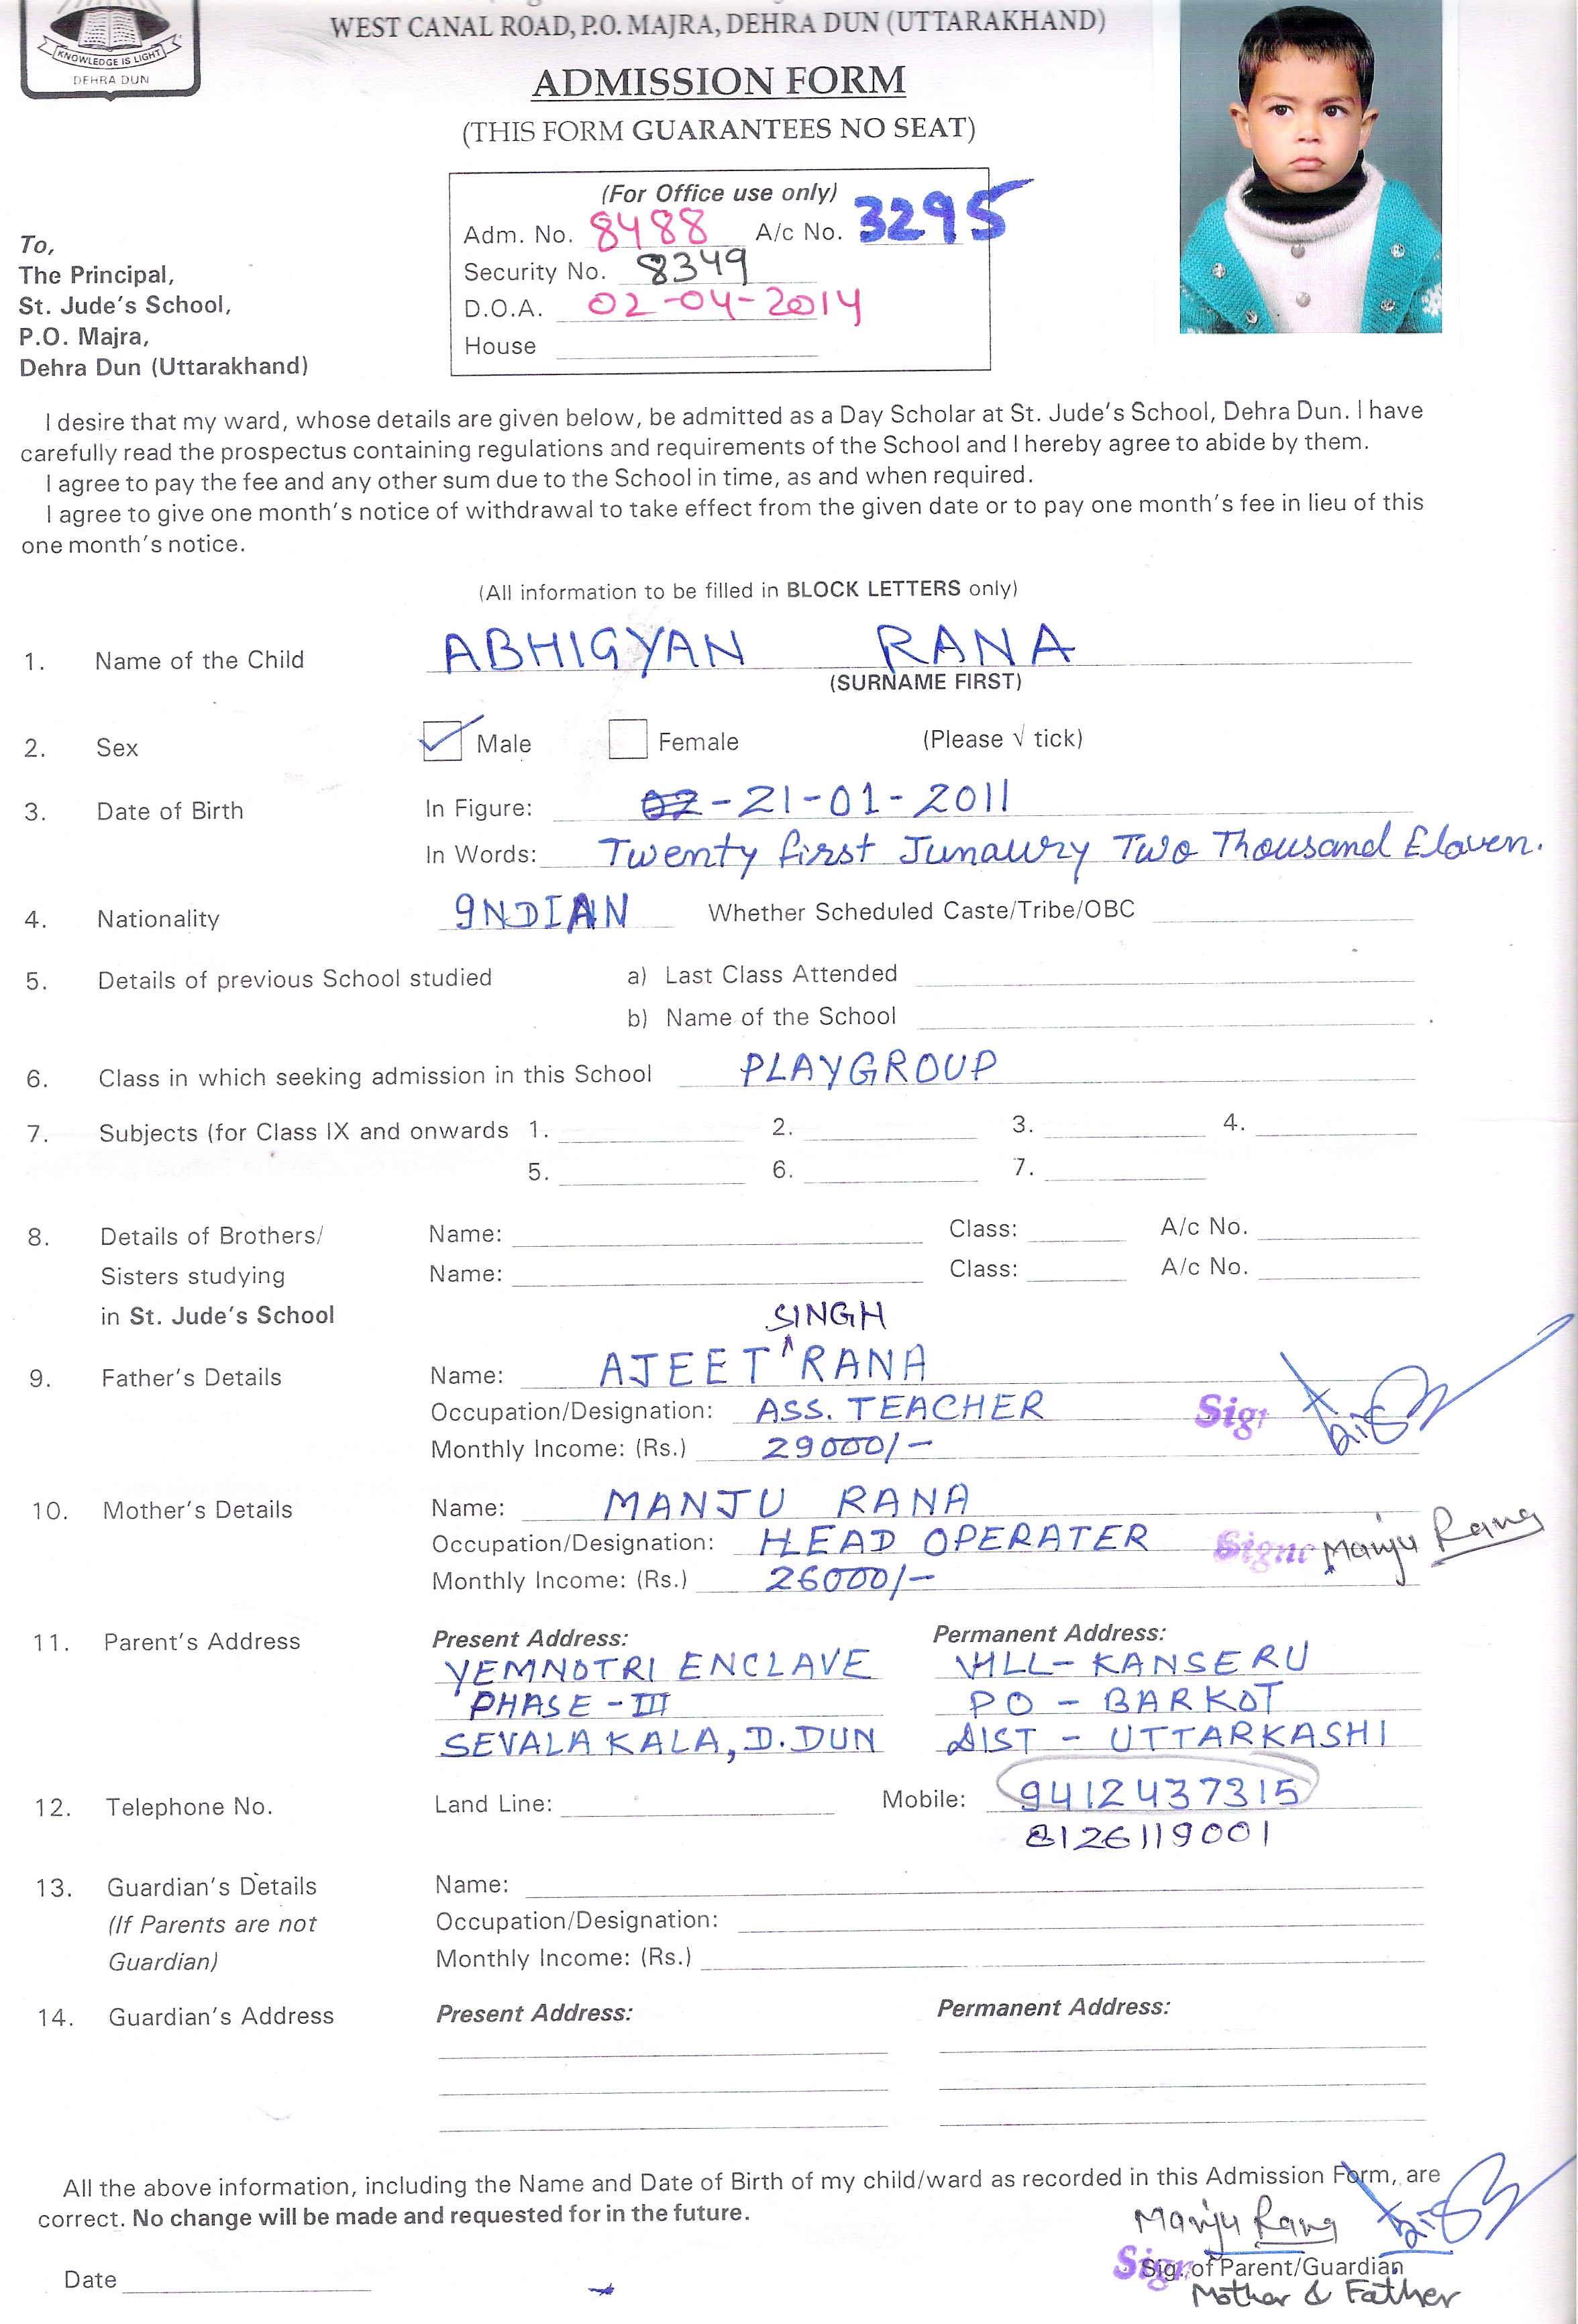 KNOWLEDGE IS LIGHT
DEHRA DUN
WEST CANAL ROAD, P.O. MAJRA, DEHRA DUN (UTTARAKHAND)
ADMISSION FORM
(THIS FORM GUARANTEES NO SEAT)
(For Office use only)
Adm. No. 8488 A/c No. 3295
Security No. 8349
D.O.A. 02-04-2014
House
To,
The Principal,
St. Jude's School,
P.O. Majra,
Dehra Dun (Uttarakhand)
I desire that my ward, whose details are given below, be admitted as a Day Scholar at St. Jude's School, Dehra Dun. I have
carefully read the prospectus containing regulations and requirements of the School and I hereby agree to abide by them.
I agree to pay the fee and any other sum due to the School in time, as and when required.
I agree to give one month's notice of withdrawal to take effect from the given date or to pay one month's fee in lieu of this
one month's notice.
(All information to be filled in BLOCK LETTERS only)
1. Name of the Child ABHIGYAN RANA
(SURNAME FIRST)
2. Sex Male Female (Please √ tick)
3. Date of Birth In Figure: 02-21-01-2011
In Words: Twenty first Junaury Two Thousand Elaven.
4. Nationality INDIAN Whether Scheduled Caste/Tribe/OBC
5. Details of previous School studied a) Last Class Attended
b) Name of the School
6. Class in which seeking admission in this School PLAYGROUP
7. Subjects (for Class IX and onwards 1. 2. 3. 4.
5. 6. 7.
8. Details of Brothers/ Name: Class: A/c No.
Sisters studying Name: Class: A/c No.
in St. Jude's School
SINGH
9. Father's Details Name: AJEET RANA
Occupation/Designation: ASS. TEACHER Sig
Monthly Income: (Rs.) 29000/-
10. Mother's Details Name: MANJU RANA
Occupation/Designation: HEAD OPERATER Signe Manju Rana
Monthly Income: (Rs.) 26000/-
11. Parent's Address Present Address: Permanent Address:
YEMNOTRI ENCLAVE VILL- KANSERU
PHASE - III PO - BARKOT
SEVALA KALA, D.DUN DIST - UTTARKASHI
12. Telephone No. Land Line: Mobile: 9412437315
8126119001
13. Guardian's Details Name:
(If Parents are not Occupation/Designation:
Guardian) Monthly Income: (Rs.)
14. Guardian's Address Present Address: Permanent Address:
All the above information, including the Name and Date of Birth of my child/ward as recorded in this Admission Form, are
correct. No change will be made and requested for in the future.
Manju Rana
Date Sig. of Parent/Guardian
Mother & Father